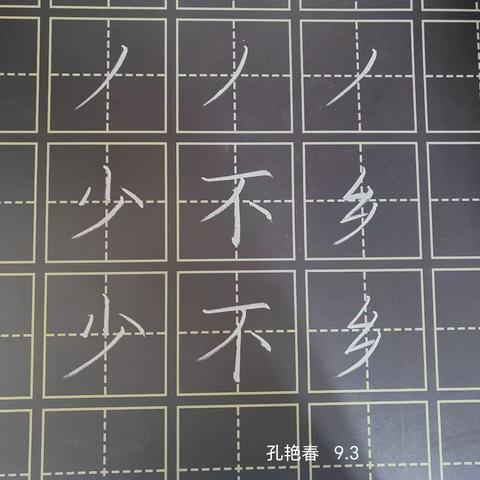 丿 丿 丿
少 不 乡
少 不 乡
孔艳春 9.3